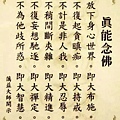 眞能念佛
放下身心世界 即大布施
不復起貪瞋癡 即大持戒
不計是非人我 即大忍辱
不稍間斷夾雜 即大精進
不復妄想馳逐 即大禪定
不為他歧所惑 即大智慧
蕅益大師開示